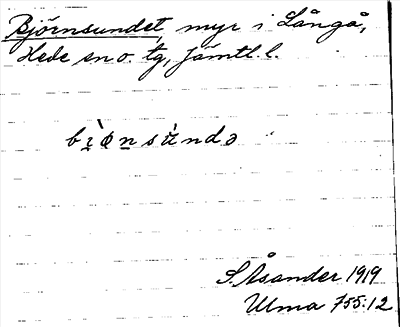 Björnsundet, myr i Långå,
Hede sn o. tg, Jämtl. l.
bi̯ø̀nsʉ̀ndə
S. Åsander 1919
Ulma 755:12